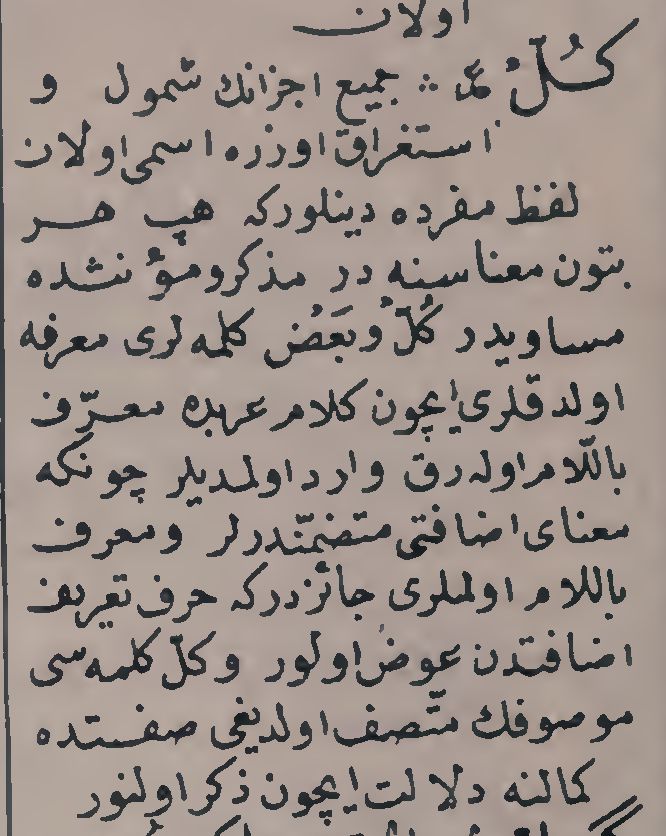 اولان
كُلّ عد ؞ جميع اجزانك شمول و
استغراق اوزره اسمى اولان
لفظ مفرده دينلوركه هپ هر
بتون معناسنه در مذكر ومؤنثده
مساويدر كُلّ وبَعَض كلمه لرى معرفه
اولدقلرى ايچون كلام عربده معرّف
باللّام اوله رق وارد اولمديلر چونكه
معناى اضافتى متضمّندرلر ومعرف
باللام اولملرى جائزدركه حرف تعريف
اضافتدن عوض اولور وكلّ كلمه سى
موصوفك متّصف اولديغى صفتده
كمالنه دلالت ايچون ذكر اولنور